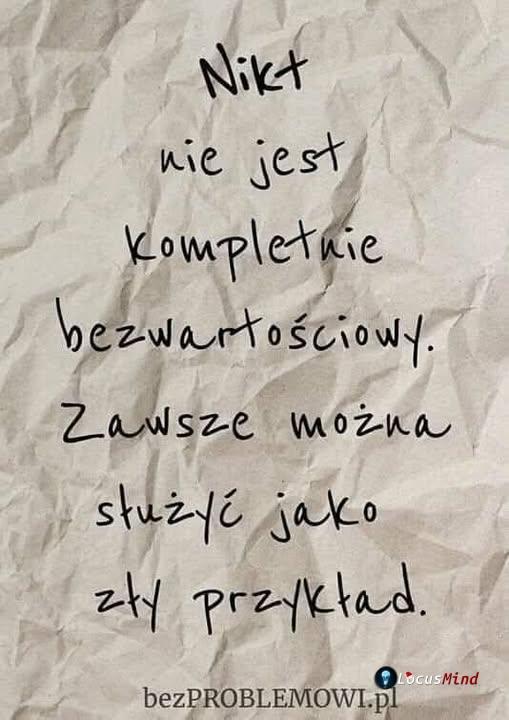 Nikt
nie jest
kompletnie
bezwartościowy.
Zawsze można
służyć jako
zły przykład.
LocusMind
bezPROBLEMOWI.pl